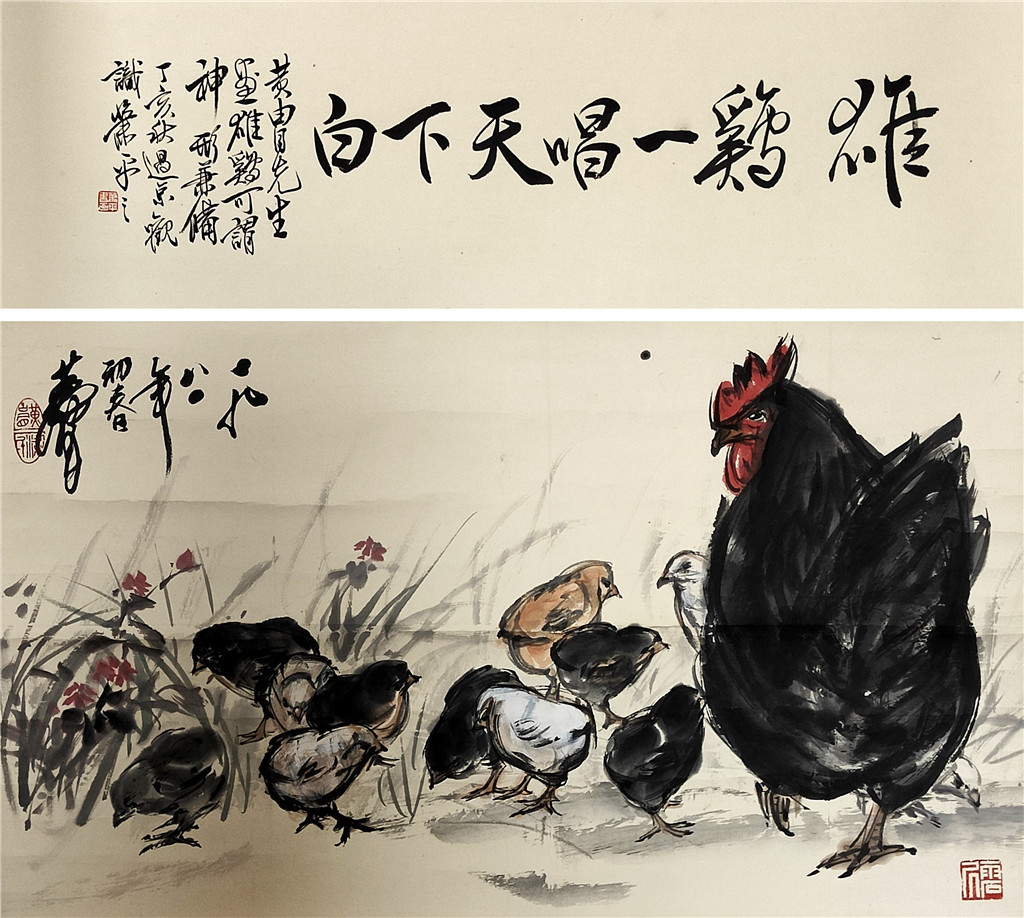 雄鷄一唱天下白
黄胄先生
畫雄鷄可謂
神形兼備
丁亥秋過京觀
識
一九
八〇
年
初春
黄胄